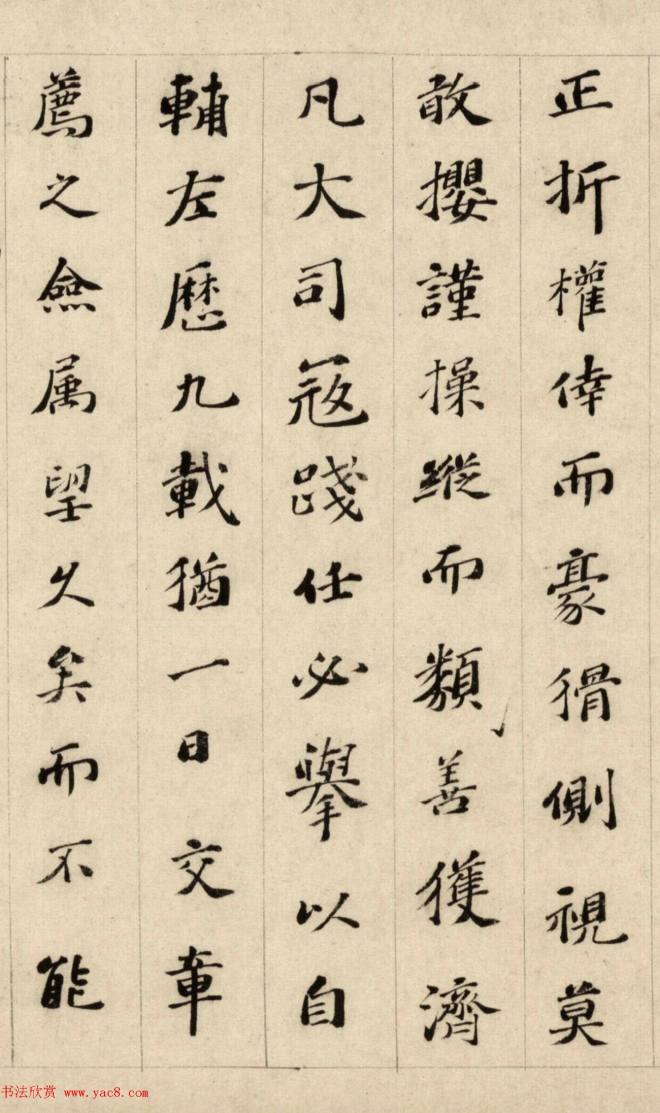 正折權倖而豪猾側視莫
敢攖謹操縱而類善獲濟
凡大司寇踐任必舉以自
輔左歷九載猶一日交章
薦之僉属望久矣而不能
书法欣赏 www.yac8.com